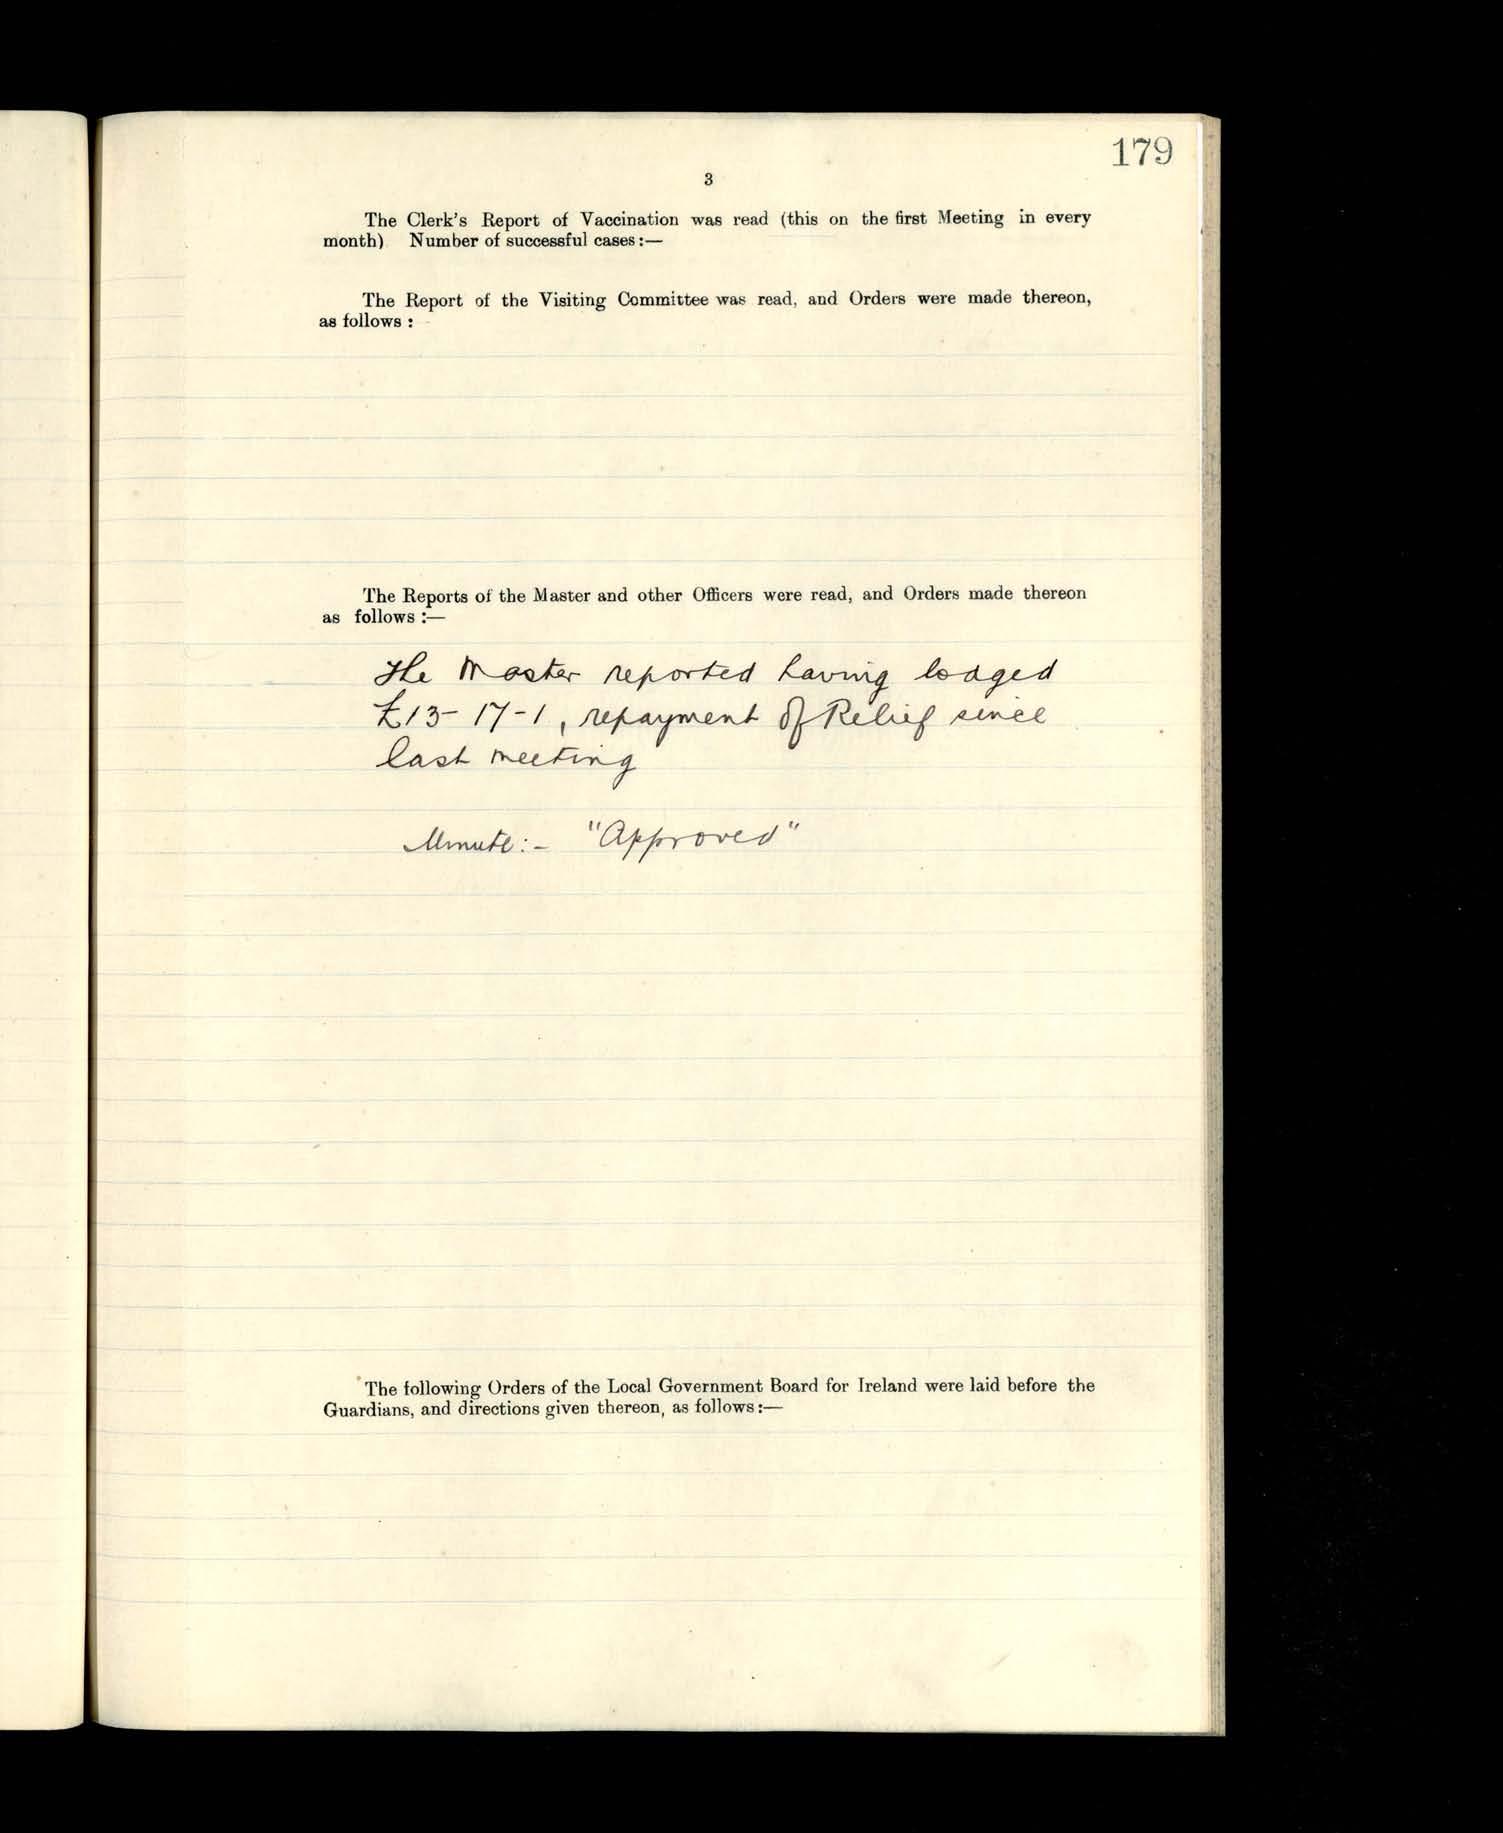 179
3
The Clerk's Report of Vaccination was read (this on the first Meeting in every
month) Number of successful cases:—
The Report of the Visiting Committee was read, and Orders were made thereon,
as follows :
The Reports of the Master and other Officers were read, and Orders made thereon
as follows :—
The Master reported having lodged
£13-17-1, repayment of Relief since
last meeting
Minute:- "Approved"
The following Orders of the Local Government Board for Ireland were laid before the
Guardians, and directions given thereon, as follows:—